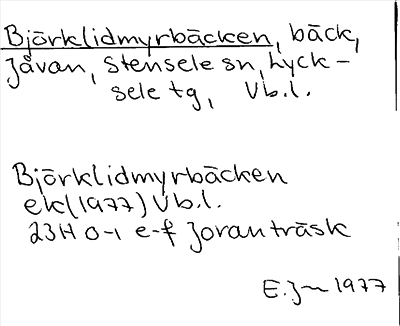 Björklidmyrbäcken, bäck,
Jåvan, Stensele sn, Lyck-
sele tg, Vb.l.
Björklidmyrbäcken
ek(1977) Vb.l.
23H 0-1 e-f Joranträsk
E.J 1977